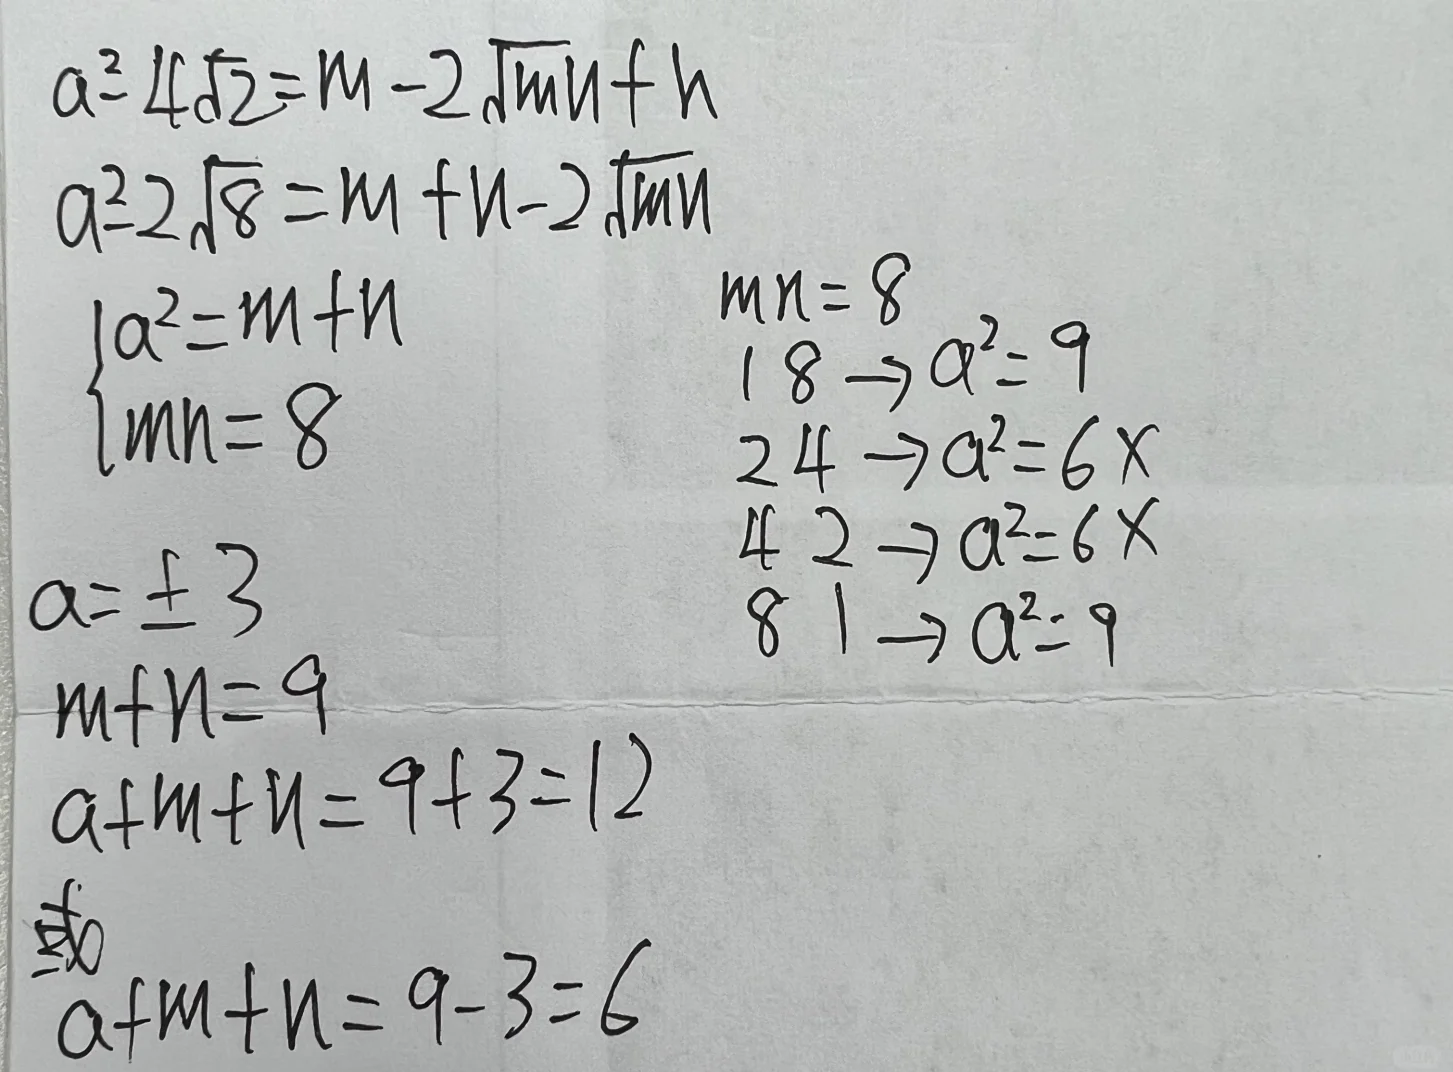 a²-4√2=m-2√mn+n
a²-2√8=m+n-2√mn
{a²=m+n
mn=8
mn=8
1 8→a²=9
2 4→a²=6×
4 2→a²=6×
8 1→a²=9
a=±3
m+n=9
a+m+n=9+3=12
或
a+m+n=9-3=6